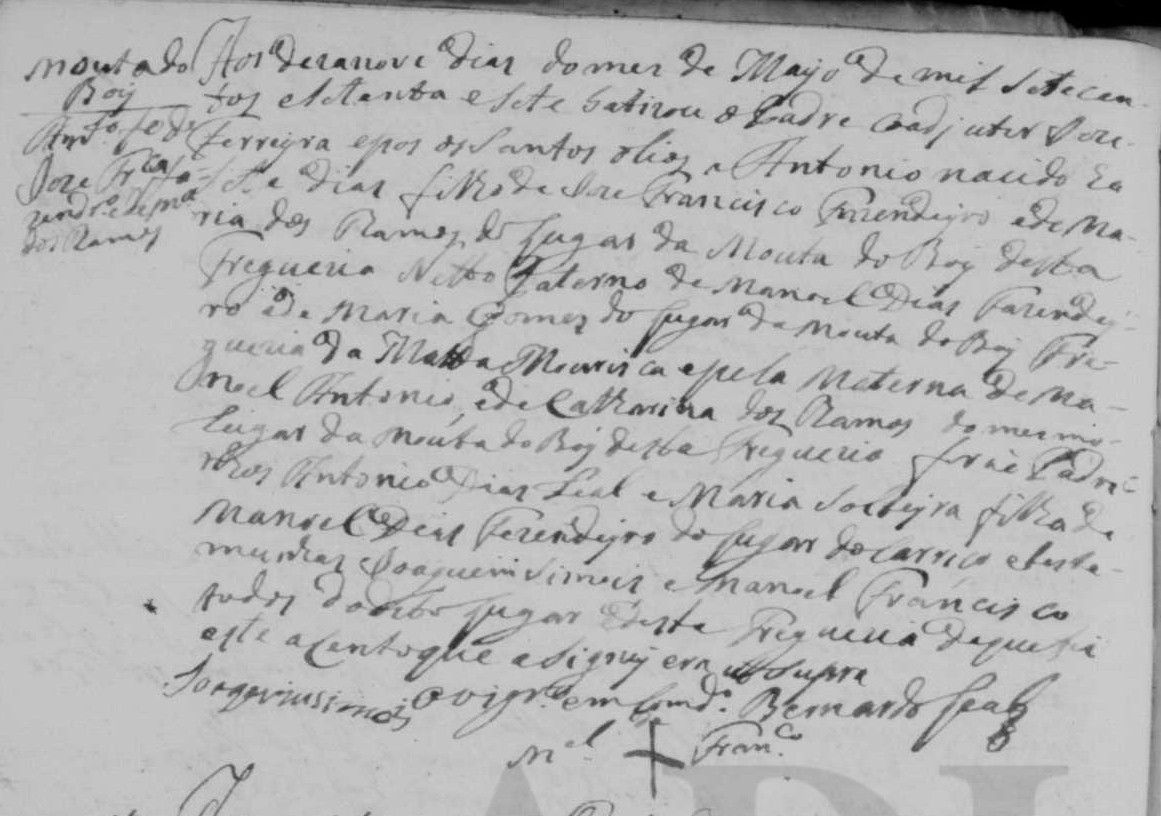 Mouta do
Boy
Antº fº de
Joze Frco Fa-
zendrº e de Mª
dos Ramos
Aos dezanove dias do mes de Mayo de mil setecen-
tos e setenta e sete batizou o Padre Coadjutor Joze
Ferreyra e pos os Santos olios a Antonio nacido ha
sete dias filho de Joze Francisco Fazendeyro e de Ma-
ria dos Ramos do lugar da Mouta do Boy desta
Freguezia Netto Paterno de Manoel Dias Fazendey-
ro e de Maria Gomes do lugar da Mouta do Boy Fre-
guezia da Matta Mourisca e pela Materna de Ma-
noel Antonio, e de Catharina dos Ramos do mesmo
Lugar da Mouta do Boy desta Freguezia forão Padri-
nhos Antonio Dias Leal e Maria Solteyra filha de
Manoel Dias Fazendeyro do lugar do Carriço e teste-
munhas Joaquim Simois e Manoel Francisco
todos do dito lugar e desta Freguezia de que fis
este acento que asigney era ut supra
Joaqvim Simois O vigrº emComdº Bernardo Leal
Mel + Franco